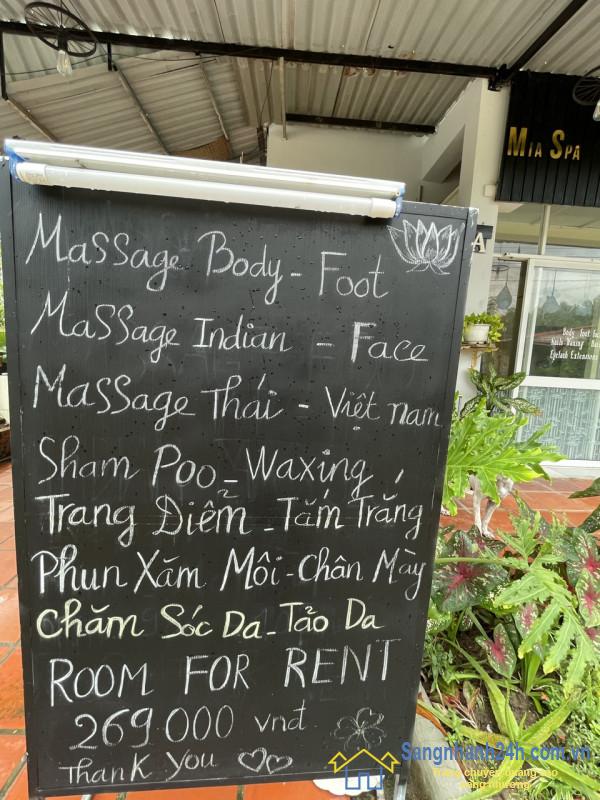 MIA SPA
Massage Body - Foot
Massage Indian - Face
Massage Thái - Việt nam
Sham Poo - Waxing
Trang Điểm - Tắm Trắng
Phun Xăm Môi - Chân Mày
Chăm Sóc Da - Tảo Da
ROOM FOR RENT
269.000 vnđ
Thank you
Eyelash Extensions
Sangnhanh24h.com.vn